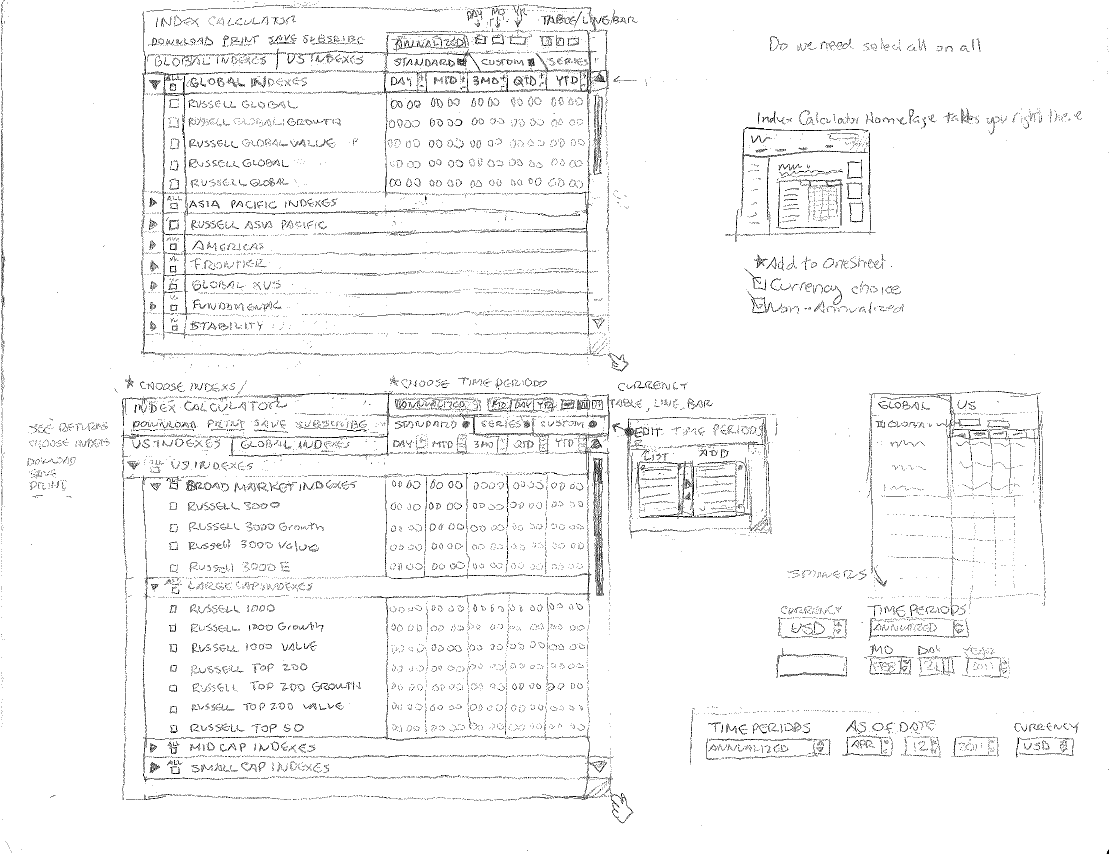 DAY MO YR
INDEX CALCULATOR TABLE/LINE/BAR
DOWNLOAD PRINT SAVE SUBSCRIBE ANNUALIZED
GLOBAL INDEXES US INDEXES STANDARD CUSTOM SERIES
ALL GLOBAL INDEXES DAY MTD 3MO QTD YTD
RUSSELL GLOBAL 00 00 00 00 00 00 00 00 00 00
RUSSELL GLOBAL GROWTH 00 00 00 00 00 00 00 00 00 00
RUSSELL GLOBAL VALUE 00 00 00 00 00 00 00 00 00 00
RUSSELL GLOBAL 00 00 00 00 00 00 00 00 00 00
RUSSELL GLOBAL 00 00 00 00 00 00 00 00 00 00
ALL ASIA PACIFIC INDEXES
RUSSELL ASIA PACIFIC
AMERICAS
FRONTIER
GLOBAL XUS
FUNDAMENTAL
STABILITY
Do we need select all on all
Index Calculator HomePage takes you right there
★Add to OneStreet.
Currency choice
Non-Annualized
★ CHOOSE INDEXS/ ★CHOOSE TIME PERIODS CURRENCY
TABLE, LINE, BAR
INDEX CALCULATOR ANNUALIZED MO DAY YR
DOWNLOAD PRINT SAVE SUBSCRIBE STANDARD SERIES CUSTOM
US INDEXES GLOBAL INDEXES DAY MTD 3MO QTD YTD
ALL US INDEXES
ALL BROAD MARKET INDEXES 00 00 00 00 00 00 00 00 00 00
RUSSELL 3000 00 00 00 00 00 00 00 00 00 00
RUSSELL 3000 Growth 00 00 00 00 00 00 00 00 00 00
Russell 3000 Value 00 00 00 00 00 00 00 00 00 00
Russell 3000 E 00 00 00 00 00 00 00 00 00 00
ALL LARGE CAP INDEXES
RUSSELL 1000 00 00 00 00 00 00 00 00 00 00
RUSSELL 1000 Growth 00 00 00 00 00 00 00 00 00 00
RUSSELL 1000 VALUE 00 00 00 00 00 00 00 00 00 00
RUSSELL TOP 200 00 00 00 00 00 00 00 00 00 00
RUSSELL TOP 200 GROWTH 00 00 00 00 00 00 00 00 00 00
RUSSELL TOP 200 VALUE 00 00 00 00 00 00 00 00 00 00
RUSSELL TOP 50 00 00 00 00 00 00 00 00 00 00
ALL MID CAP INDEXES
ALL SMALL CAP INDEXES
SEE RETURNS
CHOOSE INDEXS
DOWNLOAD
SAVE
PRINT
EDIT TIME PERIODS
LIST ADD
GLOBAL US
SPINNERS
CURRENCY TIME PERIODS
USD ANNUALIZED
MO DAY YEAR
FEB 21 2011
TIME PERIODS AS OF DATE CURRENCY
ANNUALIZED APR 12 2011 USD